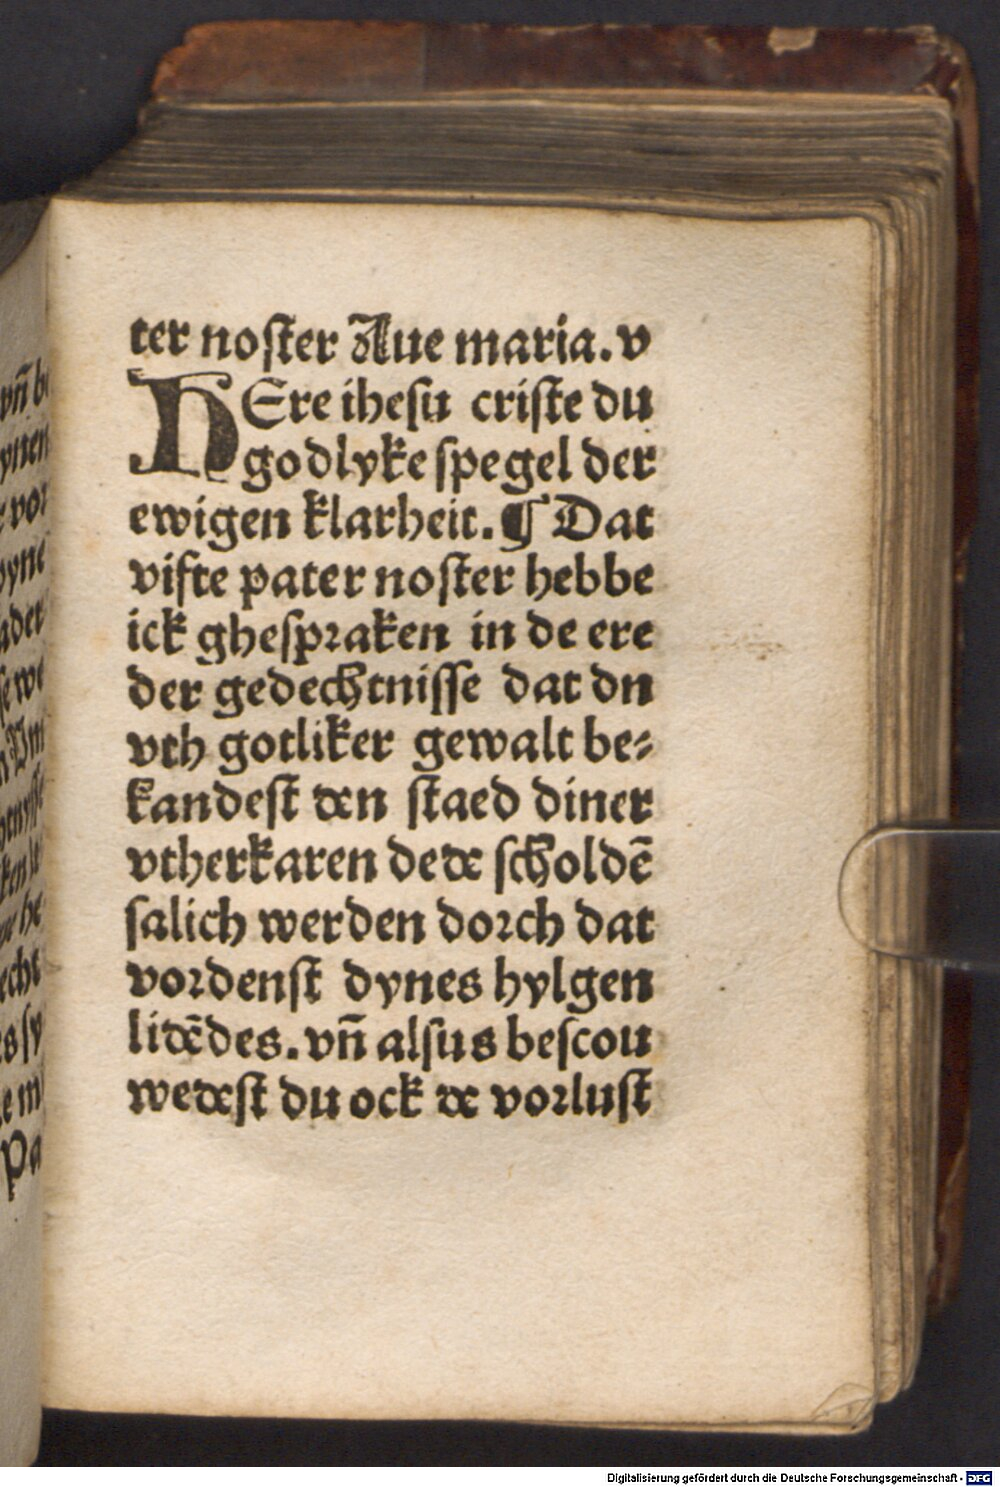 ter noſter Aue maria. v
HEre iheſu criſte du
godlyke ſpegel der
ewigen klarheit. ¶ Dat
vifte pater noſter hebbe
ick gheſpꝛaken in de ere
der gedechtniſſe dat dn
vth gotliker gewalt be⸗
kandeſt den ſtaed diner
vtherkaren dede ſcholdē
ſalich werden doꝛch dat
voꝛdenſt dynes hylgen
lidēdes. vn̄ alſus beſcou
wedeſt du ock de voꝛluſt
vn̄ be
ynen
voꝛ
ader
ſe we
ken le
echt
es ſy
Pa
Digitalisierung gefördert durch die Deutsche Forschungsgemeinschaft - DFG